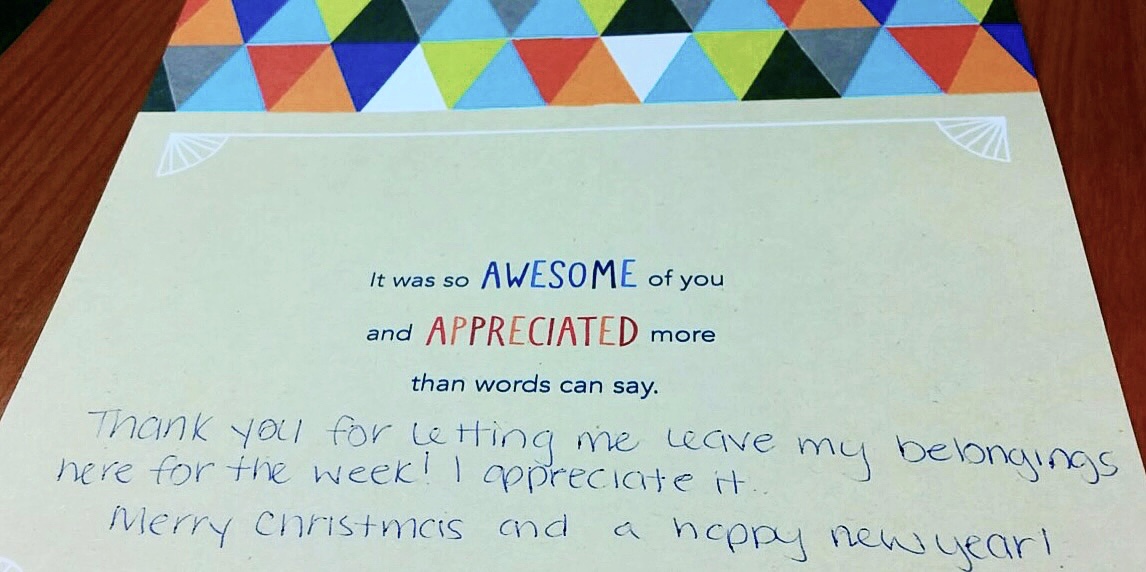 It was so AWESOME of you
and APPRECIATED more
than words can say.
Thank you for letting me leave my belongings
here for the week! I appreciate it..
Merry Christmas and a happy new year!